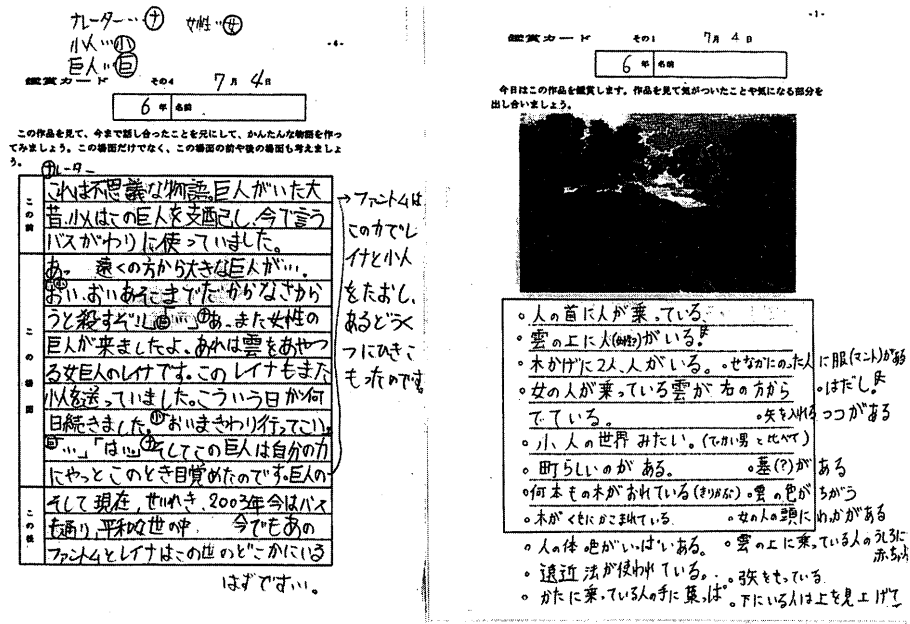 ナレーター…ナ
女性…女
小人…小
巨人…巨
-4-
鑑賞カード その4 7月4日
6年 名前
この作品を見て、今まで話し合ったことを元にして、かんたんな物語を作っ
てみましょう。この場面だけでなく、この場面の前や後の場面も考えましょ
う。
ナレーター
この前
これは不思議な物語。巨人がいた大
昔、小人はこの巨人を支配し、今で言う
バスがわりに使っていました。
この場面
あっ 遠くの方から大きな巨人が…。
おい、おいあそこまでだからなさから
うと殺すぞ!!」「…」あ、また女性の
巨人が来ましたよ、あれは雲をあやつ
る女巨人のレイナです。このレイナもまた
小人を送っていました。こういう日が何
日続きました。「おいまきわり行ってこい。
…」「は…」そしてこの巨人は自分の力
にやっとこのとき目覚めたのです。巨人の
→ファントムは
この力でレ
イナと小人
をたおし、
あるどうく
つにひきこ
もったのです
この後
そして現在、せいれき、2003年今はバス
も通り、平和な世の中 今でもあの
ファントムとレイナはこの世のどこかにいる
はずです…。
-1-
鑑賞カード その1 7月4日
6年 名前
今日はこの作品を鑑賞します。作品を見て気がついたことや気になる部分を
出し合いましょう。
。人の首に人が乗っている。
。雲の上に人がいる。
。木かげに2人、人がいる。 。せなかにのった人に服(マント)がある
。女の人が乗っている雲が右の方から 。はだし。
でている。 。矢を入れるつつがある
。小人の世界みたい。(でかい男と比べて)
。町らしいのがある。 。墓(?)がある
。何本もの木がおれている(きりかぶ) 。雲の色がちがう
。木がくもにかこまれている。 。女の人の頭にわっかがある
。人の体色がいっぱいある。 。雲の上に乗っている人のうしろに
赤ちゃん
。遠近法が使われている。 。弓矢をもっている
。かたに乗っている人の手に葉っぱ 。下にいる人は上を見上げて